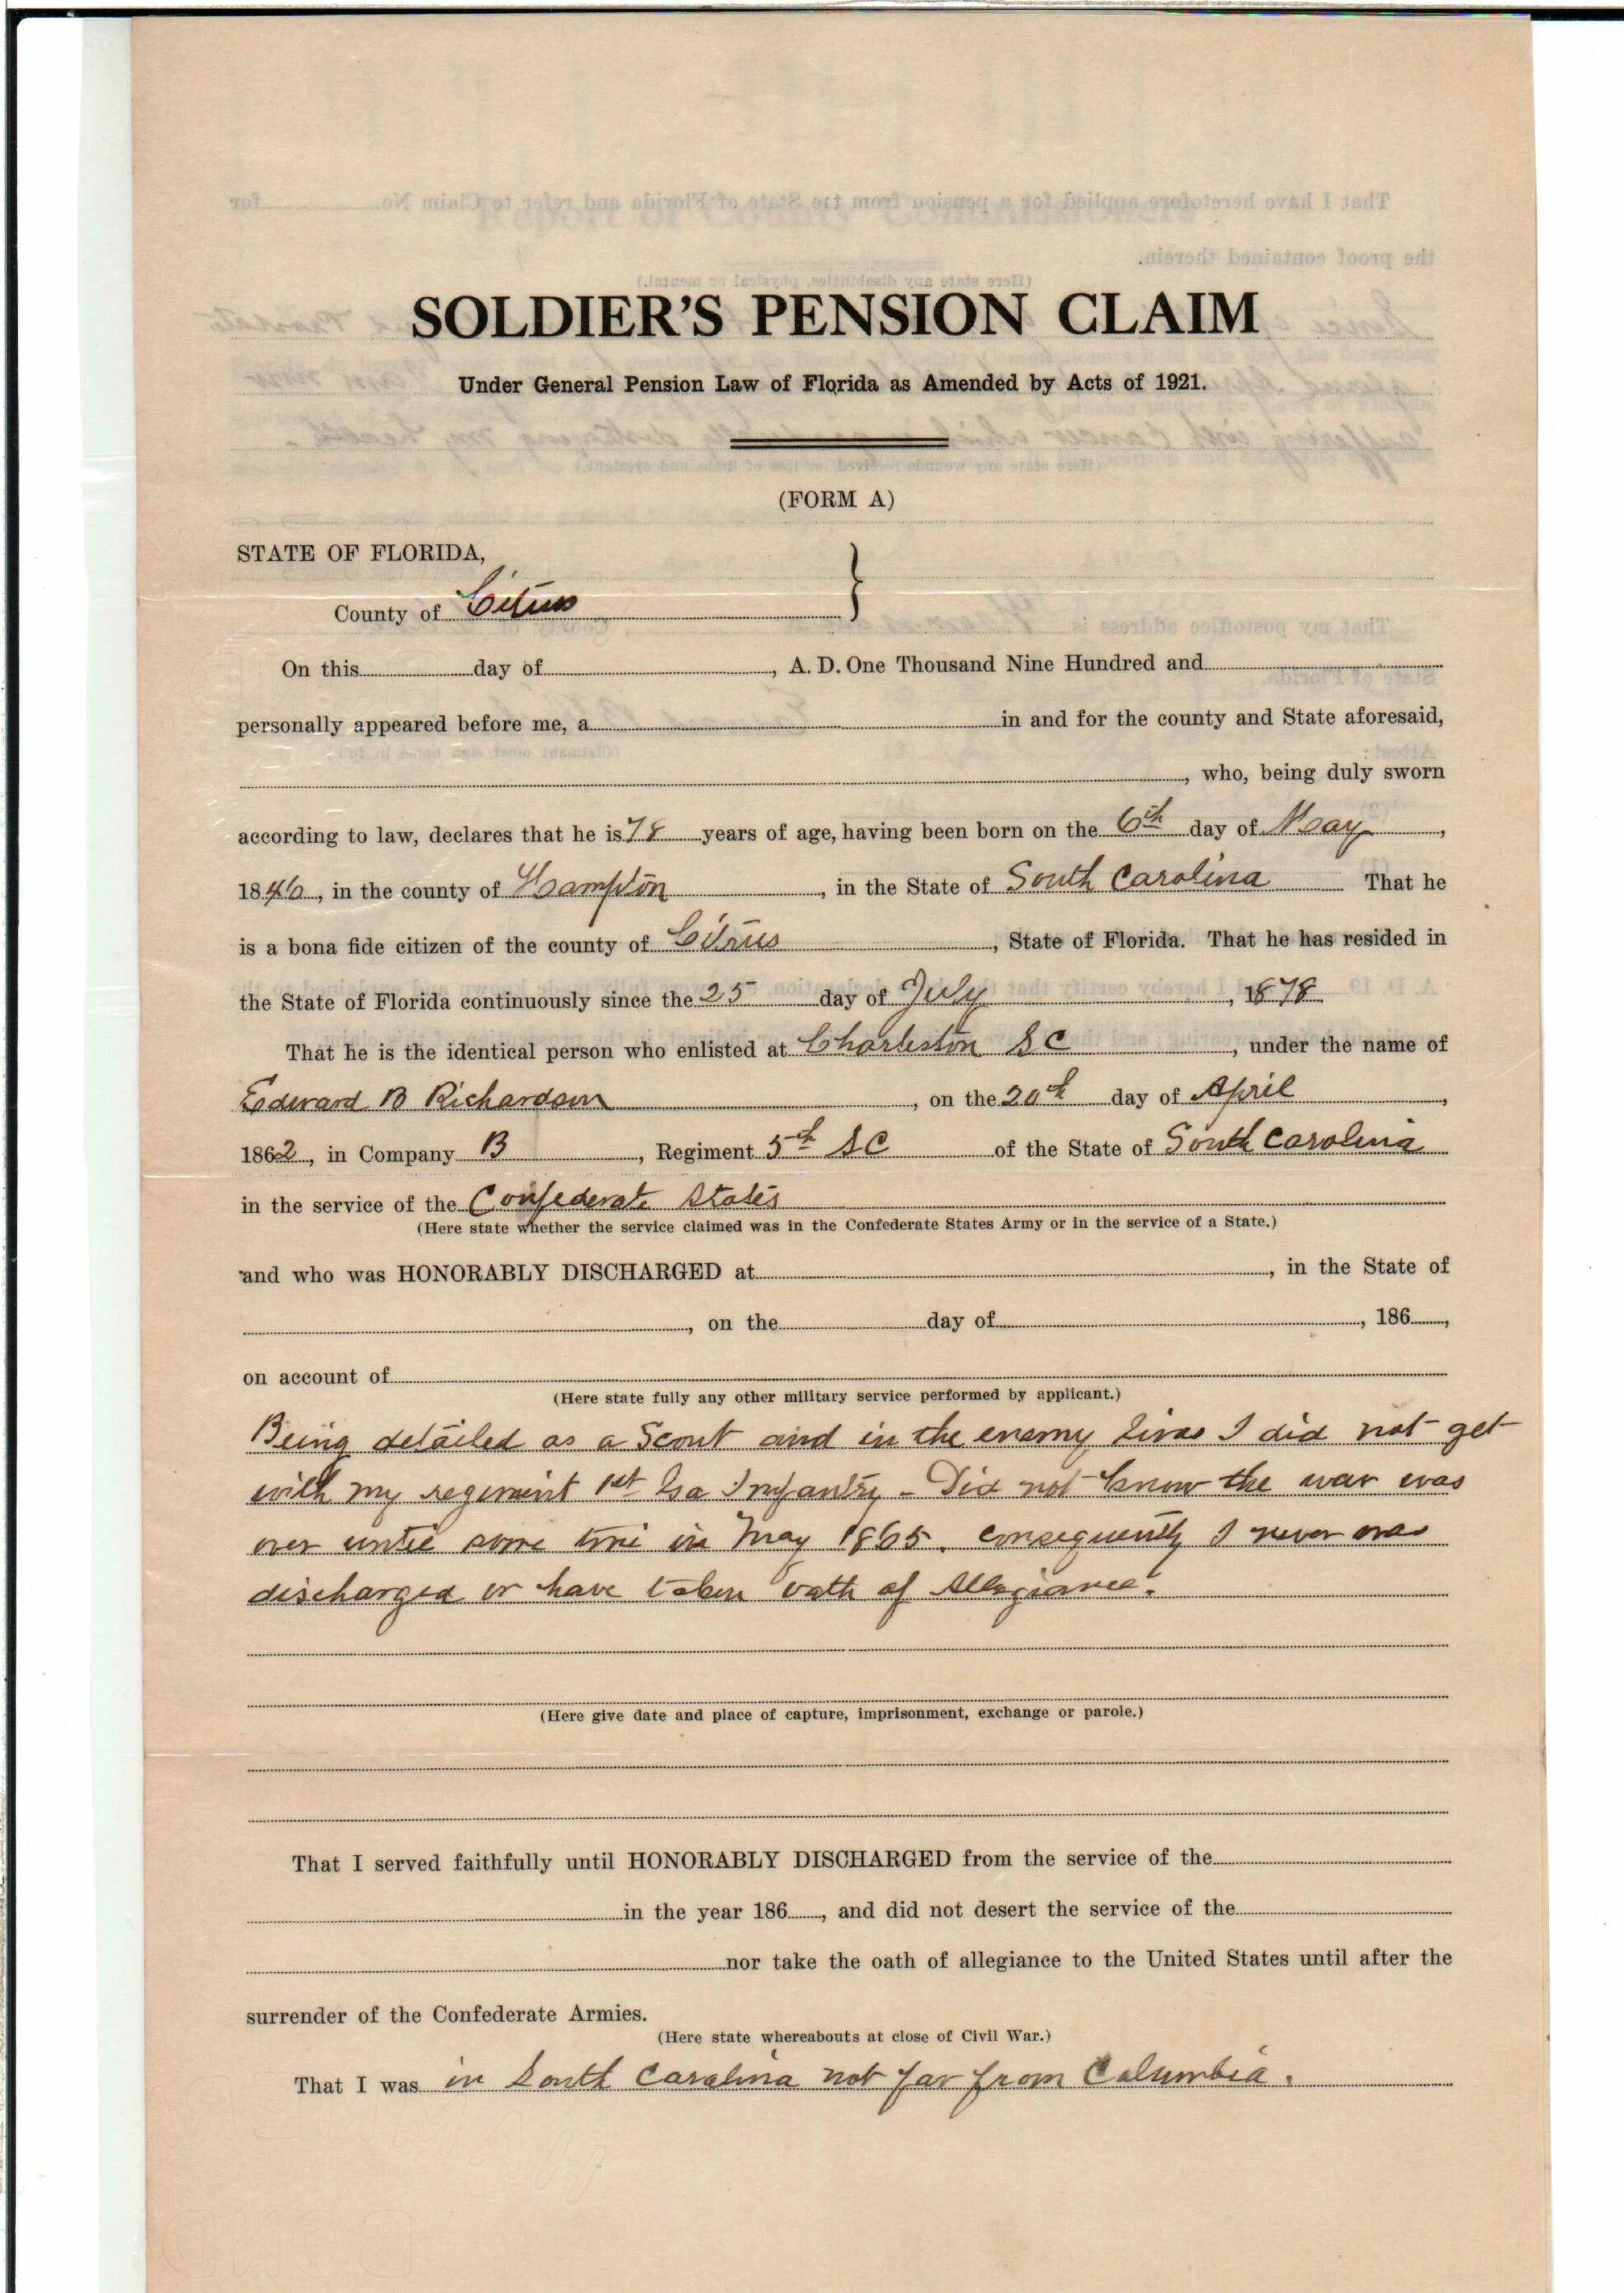 SOLDIER'S PENSION CLAIM
Under General Pension Law of Florida as Amended by Acts of 1921.
(FORM A)
STATE OF FLORIDA,
County of Citrus
On this day of , A. D. One Thousand Nine Hundred and
personally appeared before me, a in and for the county and State aforesaid,
, who, being duly sworn
according to law, declares that he is 78 years of age, having been born on the 6th day of May ,
1846, in the county of Hampton , in the State of South Carolina That he
is a bona fide citizen of the county of Citrus , State of Florida. That he has resided in
the State of Florida continuously since the 25 day of July , 1878
That he is the identical person who enlisted at Charleston SC , under the name of
Edward B Richardson , on the 20th day of April ,
1862, in Company B , Regiment 5th SC of the State of South Carolina
in the service of the Confederate States
(Here state whether the service claimed was in the Confederate States Army or in the service of a State.)
and who was HONORABLY DISCHARGED at , in the State of
, on the day of , 186 ,
on account of
(Here state fully any other military service performed by applicant.)
Being detailed as a Scout and in the enemy lines I did not get
with my regiment 1st Ga Infantry - Did not know the war was
over until some time in May 1865. Consequently I never was
discharged or have taken oath of Allegiance.
(Here give date and place of capture, imprisonment, exchange or parole.)
That I served faithfully until HONORABLY DISCHARGED from the service of the
in the year 186 , and did not desert the service of the
nor take the oath of allegiance to the United States until after the
surrender of the Confederate Armies.
(Here state whereabouts at close of Civil War.)
That I was in South Carolina not far from Columbia.